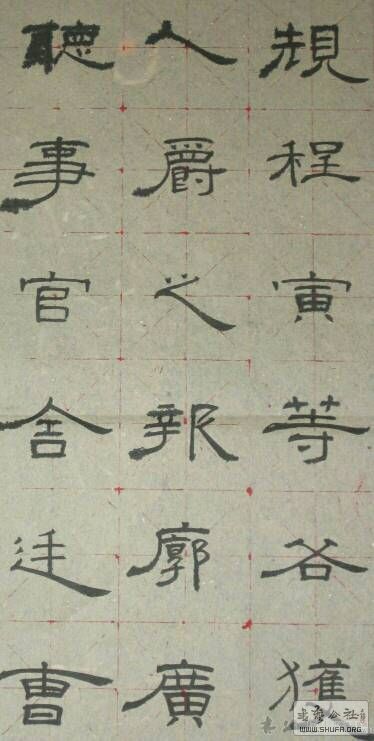 規程寅等各獲
人爵之報廓廣
聽事官舍廷曹
WWW.SHUFA.ORG